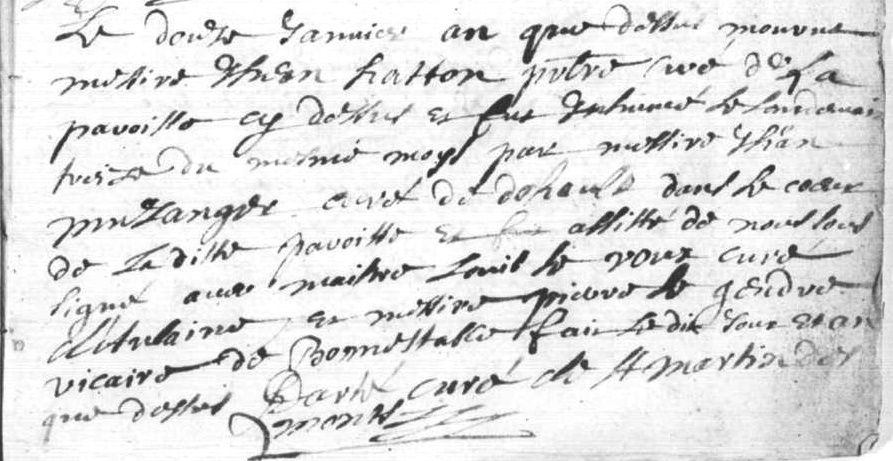 Le douze Januier an que dessus mourut
messire Jhean hatton pbre curé de La
paroisse cy dessus et fut Inhumé le landemain
treize du mesme moys par messire Jhan
curé de dehault dans le cœur
de La ditte paroisse et fut assisté de nous sous
signé auec maistre Louis le roux curé
et messire pierre le gendre
vicaire de Bonnestable fait Le dit Jour et an
que dessus Darté curé de St martin des
monts